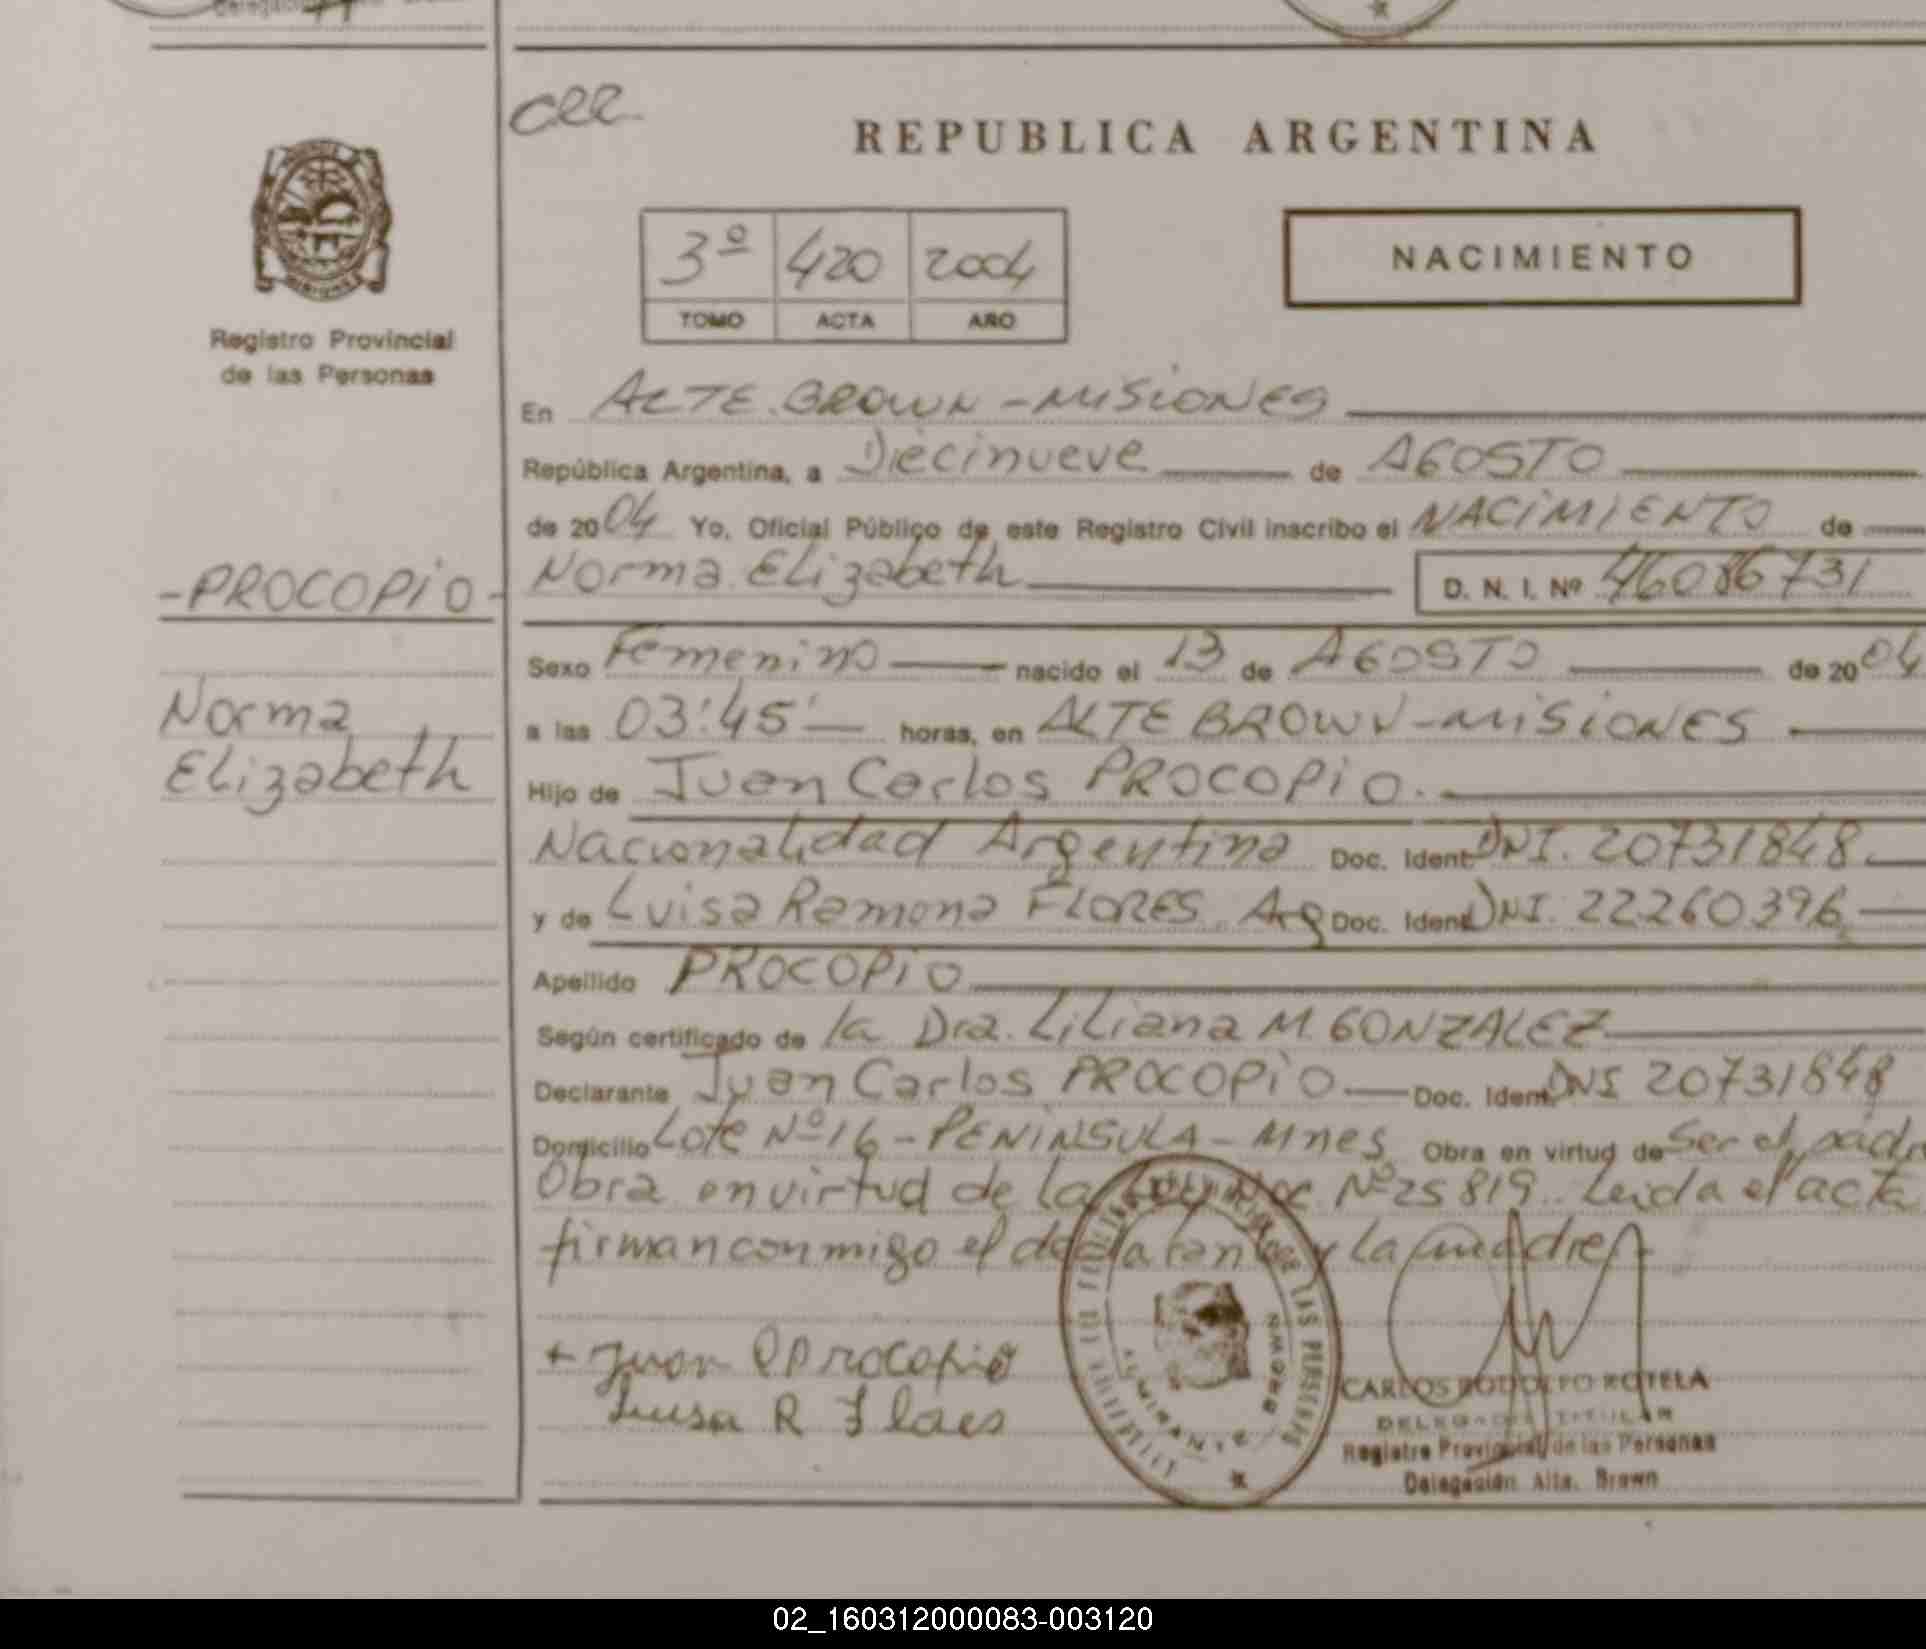 cee
REPUBLICA ARGENTINA
3º 420 2004
TOMO ACTA AÑO
NACIMIENTO
Registro Provincial
de las Personas
En ALTE. BROWN - MISIONES
República Argentina, a Diecinueve de AGOSTO
de 2004 Yo, Oficial Público de este Registro Civil inscribo el NACIMIENTO de
-PROCOPIO- Norma Elizabeth D. N. I. Nº 46086731
Sexo Femenino nacido el 13 de AGOSTO de 2004
Norma
Elizabeth
a las 03:45' horas, en ALTE BROWN - MISIONES
Hijo de Juan Carlos PROCOPIO.
Nacionalidad Argentina Doc. Ident. DNI. 20731848
y de Luisa Ramona FLORES. Arg Doc. Ident. DNI. 22260396
Apellido PROCOPIO
Según certificado de la Dra. Liliana M. GONZALEZ
Declarante Juan Carlos PROCOPIO Doc. Ident. DNI 20731848
Domicilio Lote Nº 16 - PENINSULA - Mnes Obra en virtud de Ser el padre
Obra en virtud de la Nº 25819. Leida el acta
firman conmigo el declarante y la madre
+ Juan C Procopio
Luisa R Flores
ALMIRANTE BROWN
CARLOS RODOLFO ROTELA
DELEGADO TITULAR
Registro Provincial de las Personas
Delegación Alte. Brown
02_160312000083-003120